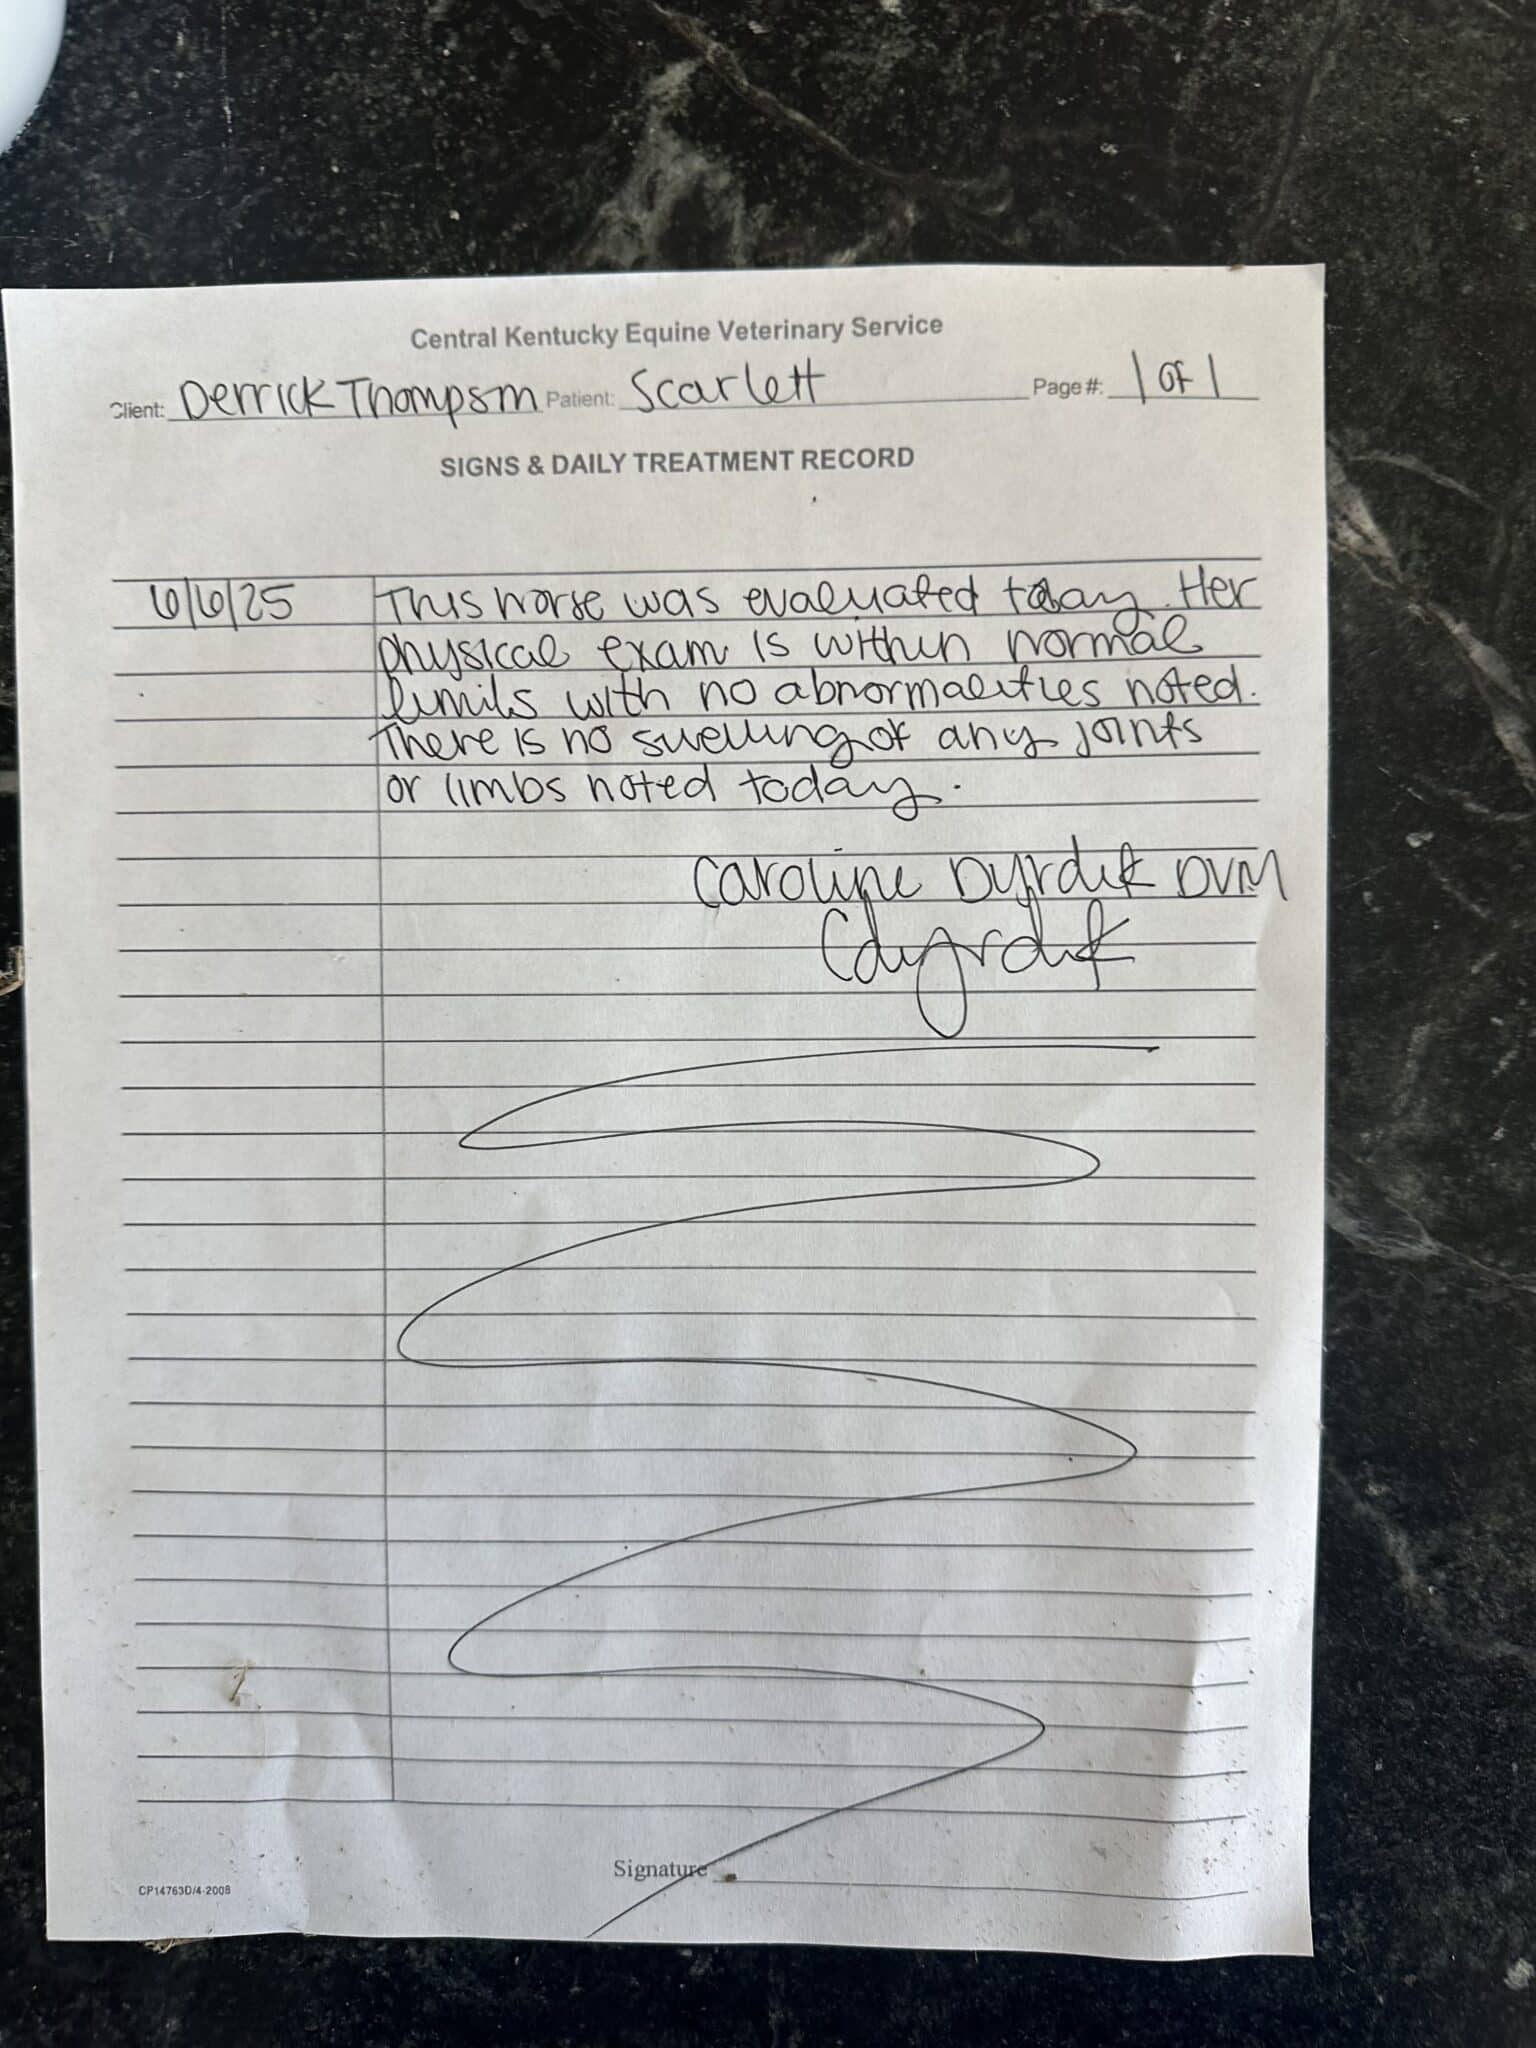 Central Kentucky Equine Veterinary Service
Client: Derrick Thompson Patient: Scarlett Page #: 1 of 1
SIGNS & DAILY TREATMENT RECORD
6/6/25 This horse was evaluated today. Her
physical exam is within normal
limits with no abnormalities noted.
There is no swelling of any joints
or limbs noted today.
Caroline Dyrdek DVM
Cdyrdek
Signature
CP14763D/4-2008